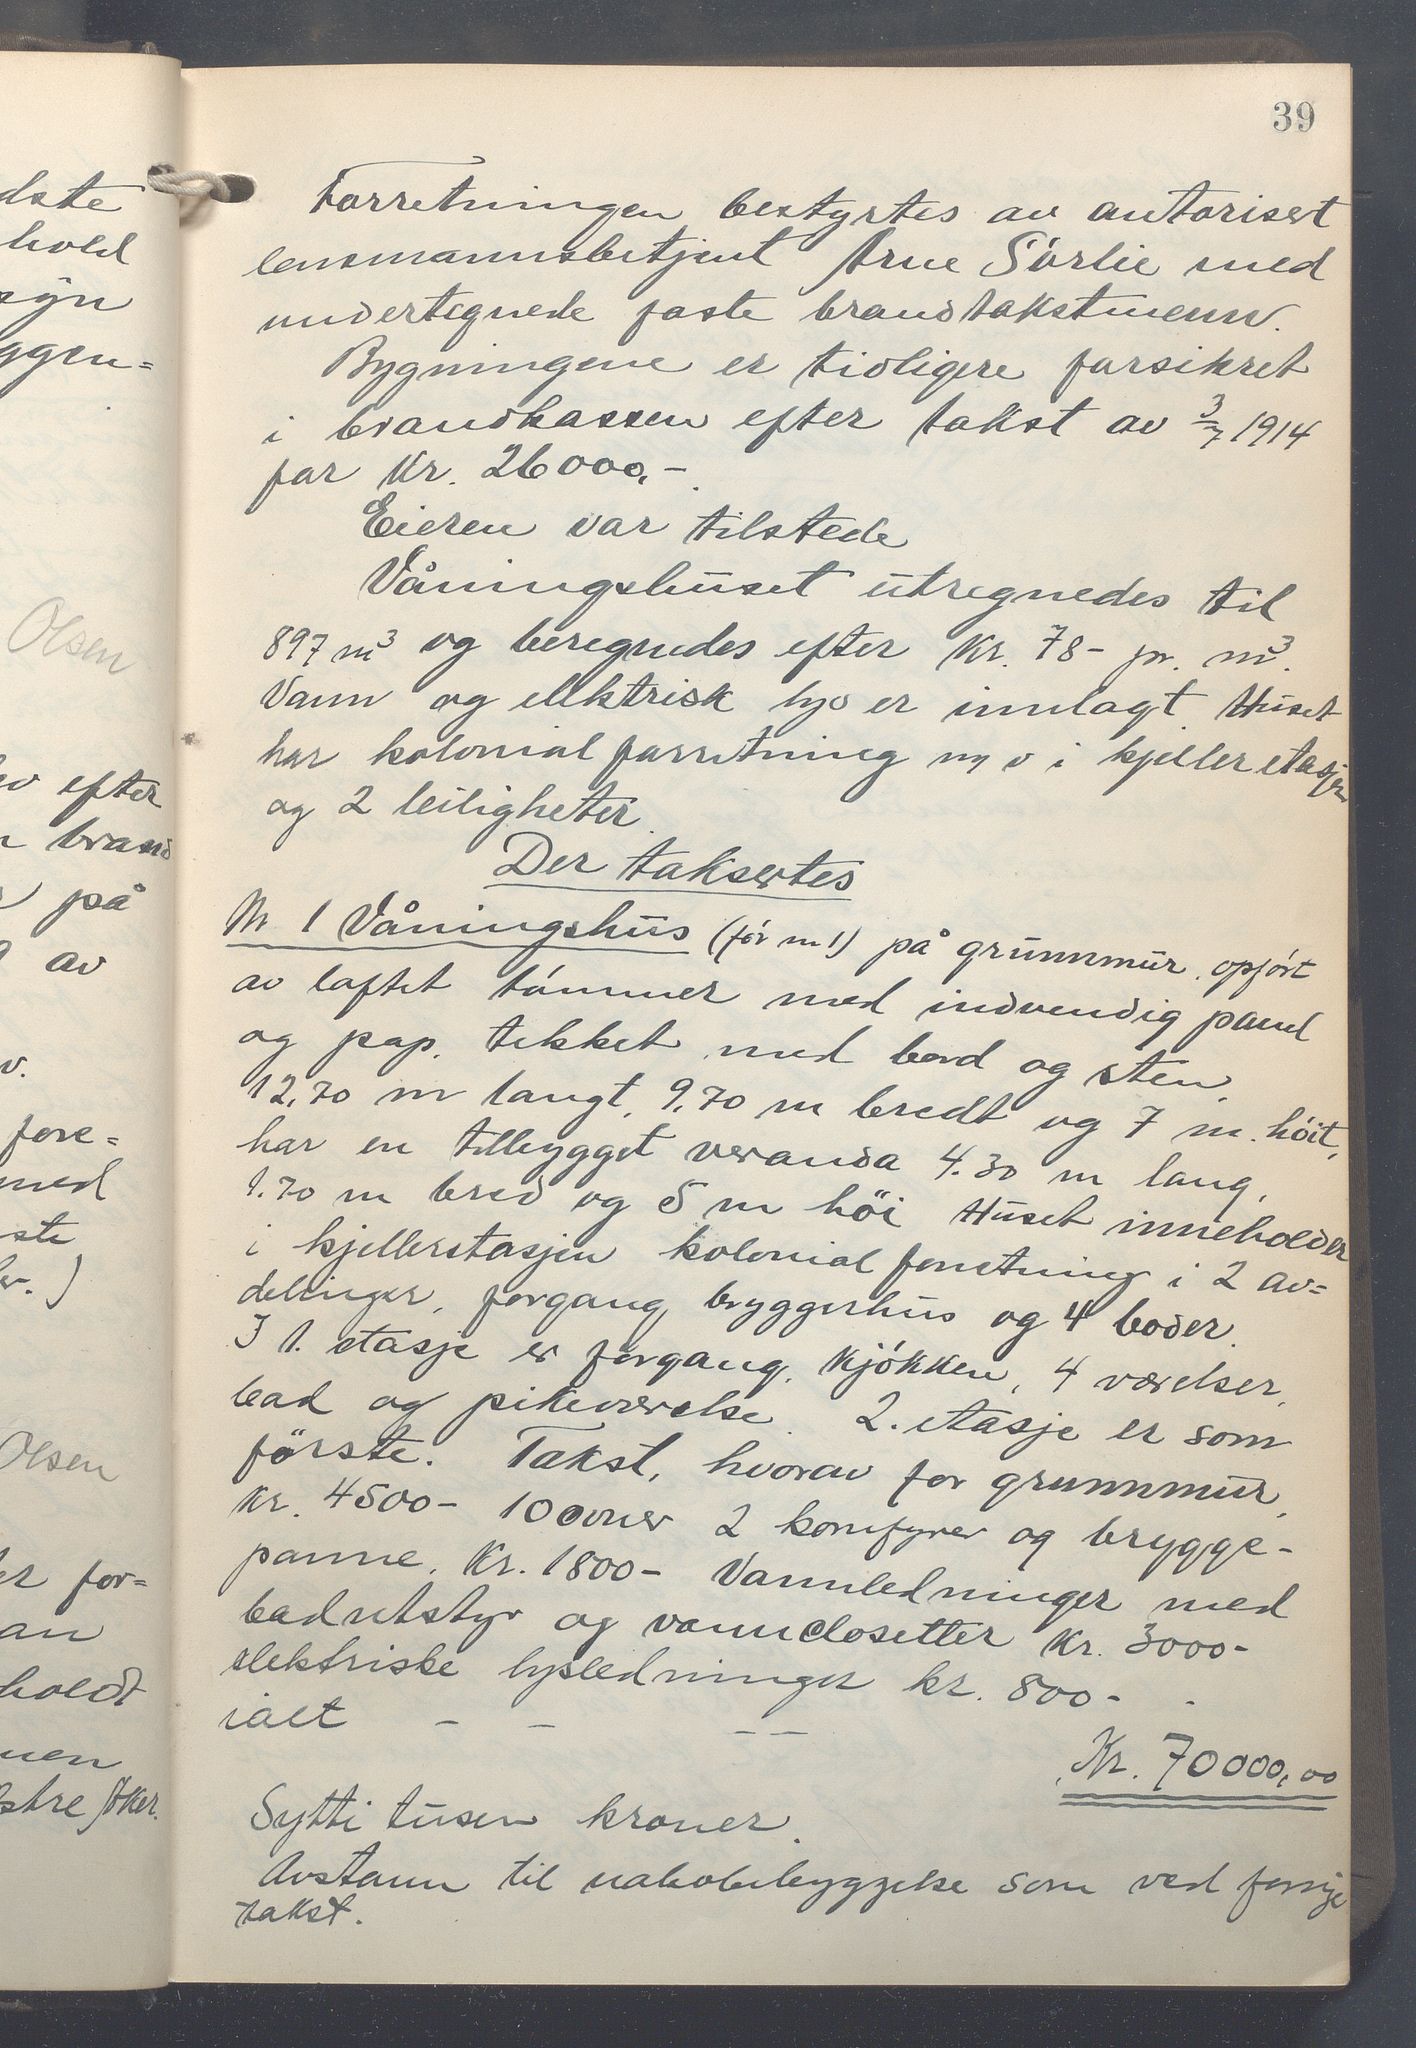 39
Forretningen bestyrtes av autorisert
lensmannsbetjent Arne Sörlie med
undertegnede faste brandtakstmenn.
Bygningene er tidligere forsikret
i brandkassen efter takst av 3/7 1914
for Kr. 26000,-.
Eieren var tilstede
Våningshuset utregnedes til
897 m³ og beregnedes efter Kr. 78- pr. m³.
Vann og elektrisk lys er innlagt. Huset
har kolonialforretning i kjelleretasjen
og 2 leiligheter.
Der taksertes
Nr 1 Våningshus (för nr 1) på grunnmur, opfört
av laftet tömmer med indvendig panel
og pap, tekket med bord og sten,
12,70 m langt, 9,70 m bredt og 7 m. höit,
har en tilbygget veranda 4.30 m lang,
1.70 m bred og 5 m höi Huset inneholder
i kjelleretasjen kolonialforretning i 2 av=
delinger, forgang, bryggerhus og 4 boder.
I 1. etasje er forgang, kjökken, 4 værelser,
bad og pikeværelse. 2. etasje er som
förste. Takst, hvorav for grunnmur,
Kr. 4500- 10 ovner 2 komfyrer og brygge-
panne, Kr. 1800- Vannledninger med
badutstyr og vannclosetter Kr. 3000-
elektriske lysledninger kr. 800-
ialt - - - -
Kr. 70000,00
Sytti tusen kroner.
Avstann til nabobebyggelse som ved forrige
takst.
dste
hold
syn
ggen=
Olsen
efter
brand
på
av
fore=
med
ste
Olsen
for=
an
holdt